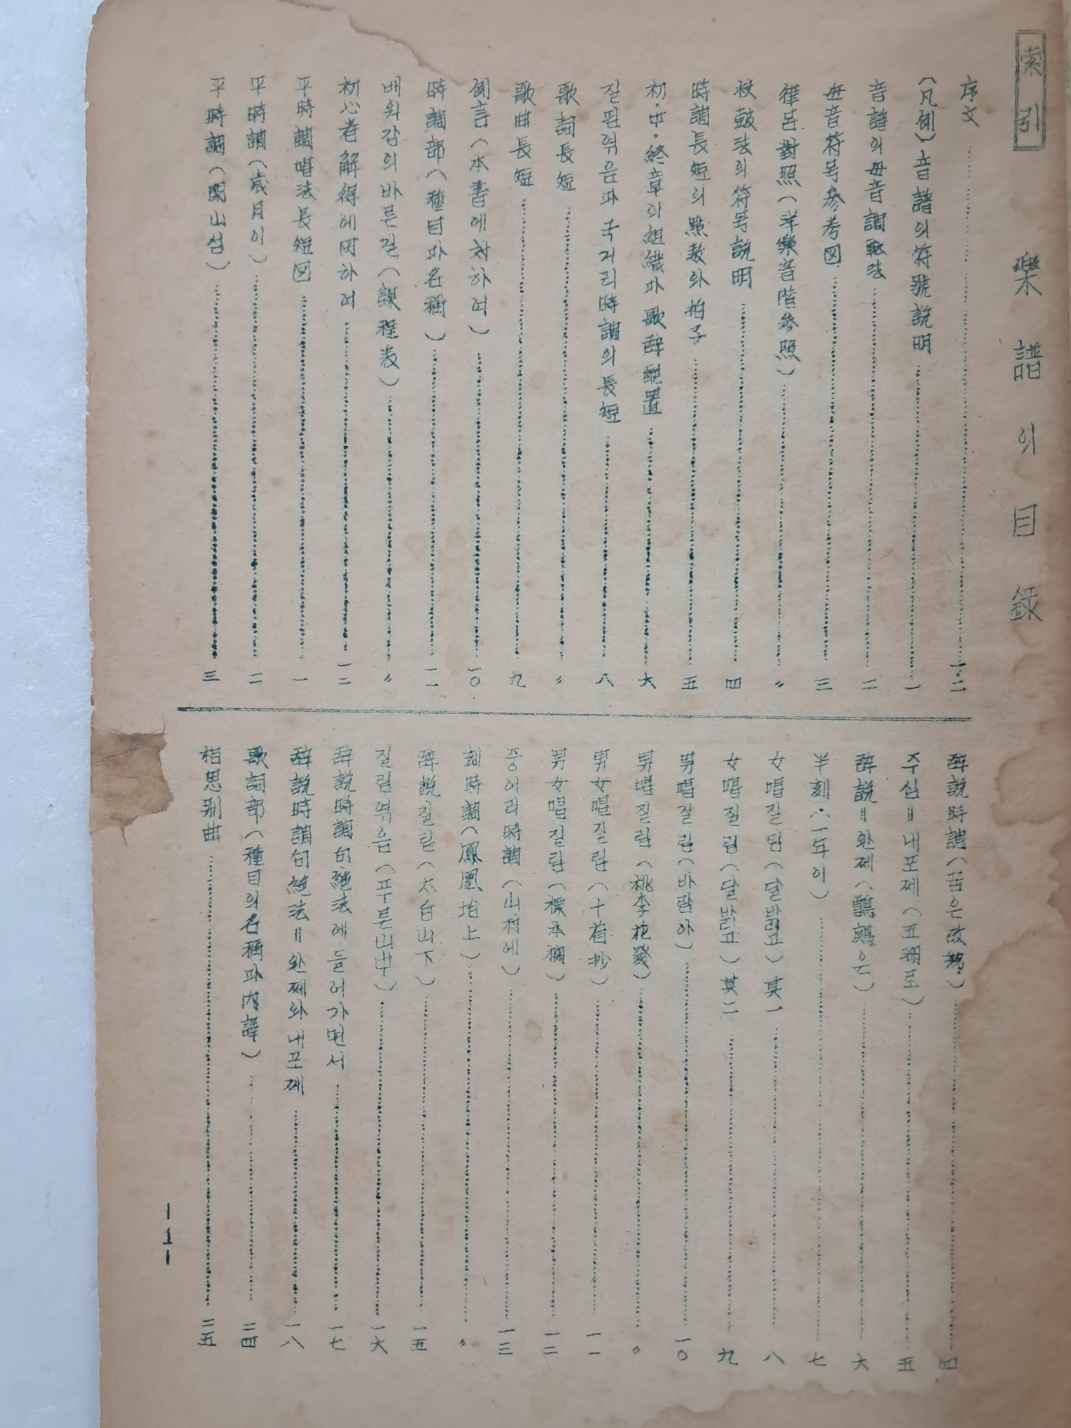 索引
樂譜의目錄
序文 一・二
(凡例) 音譜의符號說明 一
音譜의母音調 法 二
母音符号參考図 三
律呂對照(洋樂音階參照) 〃
杖鼓法의符号說明 四
時調長短의點数와拍子 五
初・中・終章의組織과歌辞配置 六
질림엮음과 국거리時調의長短 八
歌詞長短 〃
歌曲長短 九
例言(本書에対하여) 一〇
時調部(種目과名稱) 一一
배워감의바른길(課程表) 〃
初心者解得에対하여 一二
平時調唱法長短図 一
平時調(歲月이) 二
平時調(関山섬) 三
辞說時調(은故鄕) 四
주심〓내포제(五嶺로) 五
辞說〓완제(鸚鵡은) 六
半刻・(一年이) 七
女唱질림(달밝고)其一 八
女唱질림(달밝고)其二 九
男唱질림(바람아) 一〇
男唱질림(桃李花發) 〃
男女唱질림(十載抄) 一一
男女唱질림 一二
중어리時調(山村에) 一三
時調(鳳凰坮上) 〃
辞說질림(太白山下) 一五
질림엮음(푸른山中) 一六
辞說時調句絶法에들어가면서 一七
辞說時調句絶法〓완제와내포제 一八
歌詞部(種目의名稱과内譯) 二四
相思别曲 二五
—1—